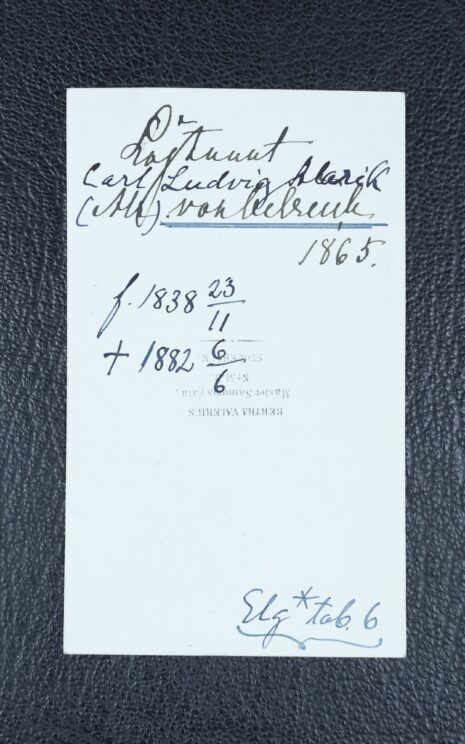 Löjtnant
Carl Ludvig Alarik
von
1865.
f. 1838 23/11
+ 1882 6/6
BERTHA VALERIUS
Mäster Samuels gata,
STOCKHOLM.
Elg * tab. 6